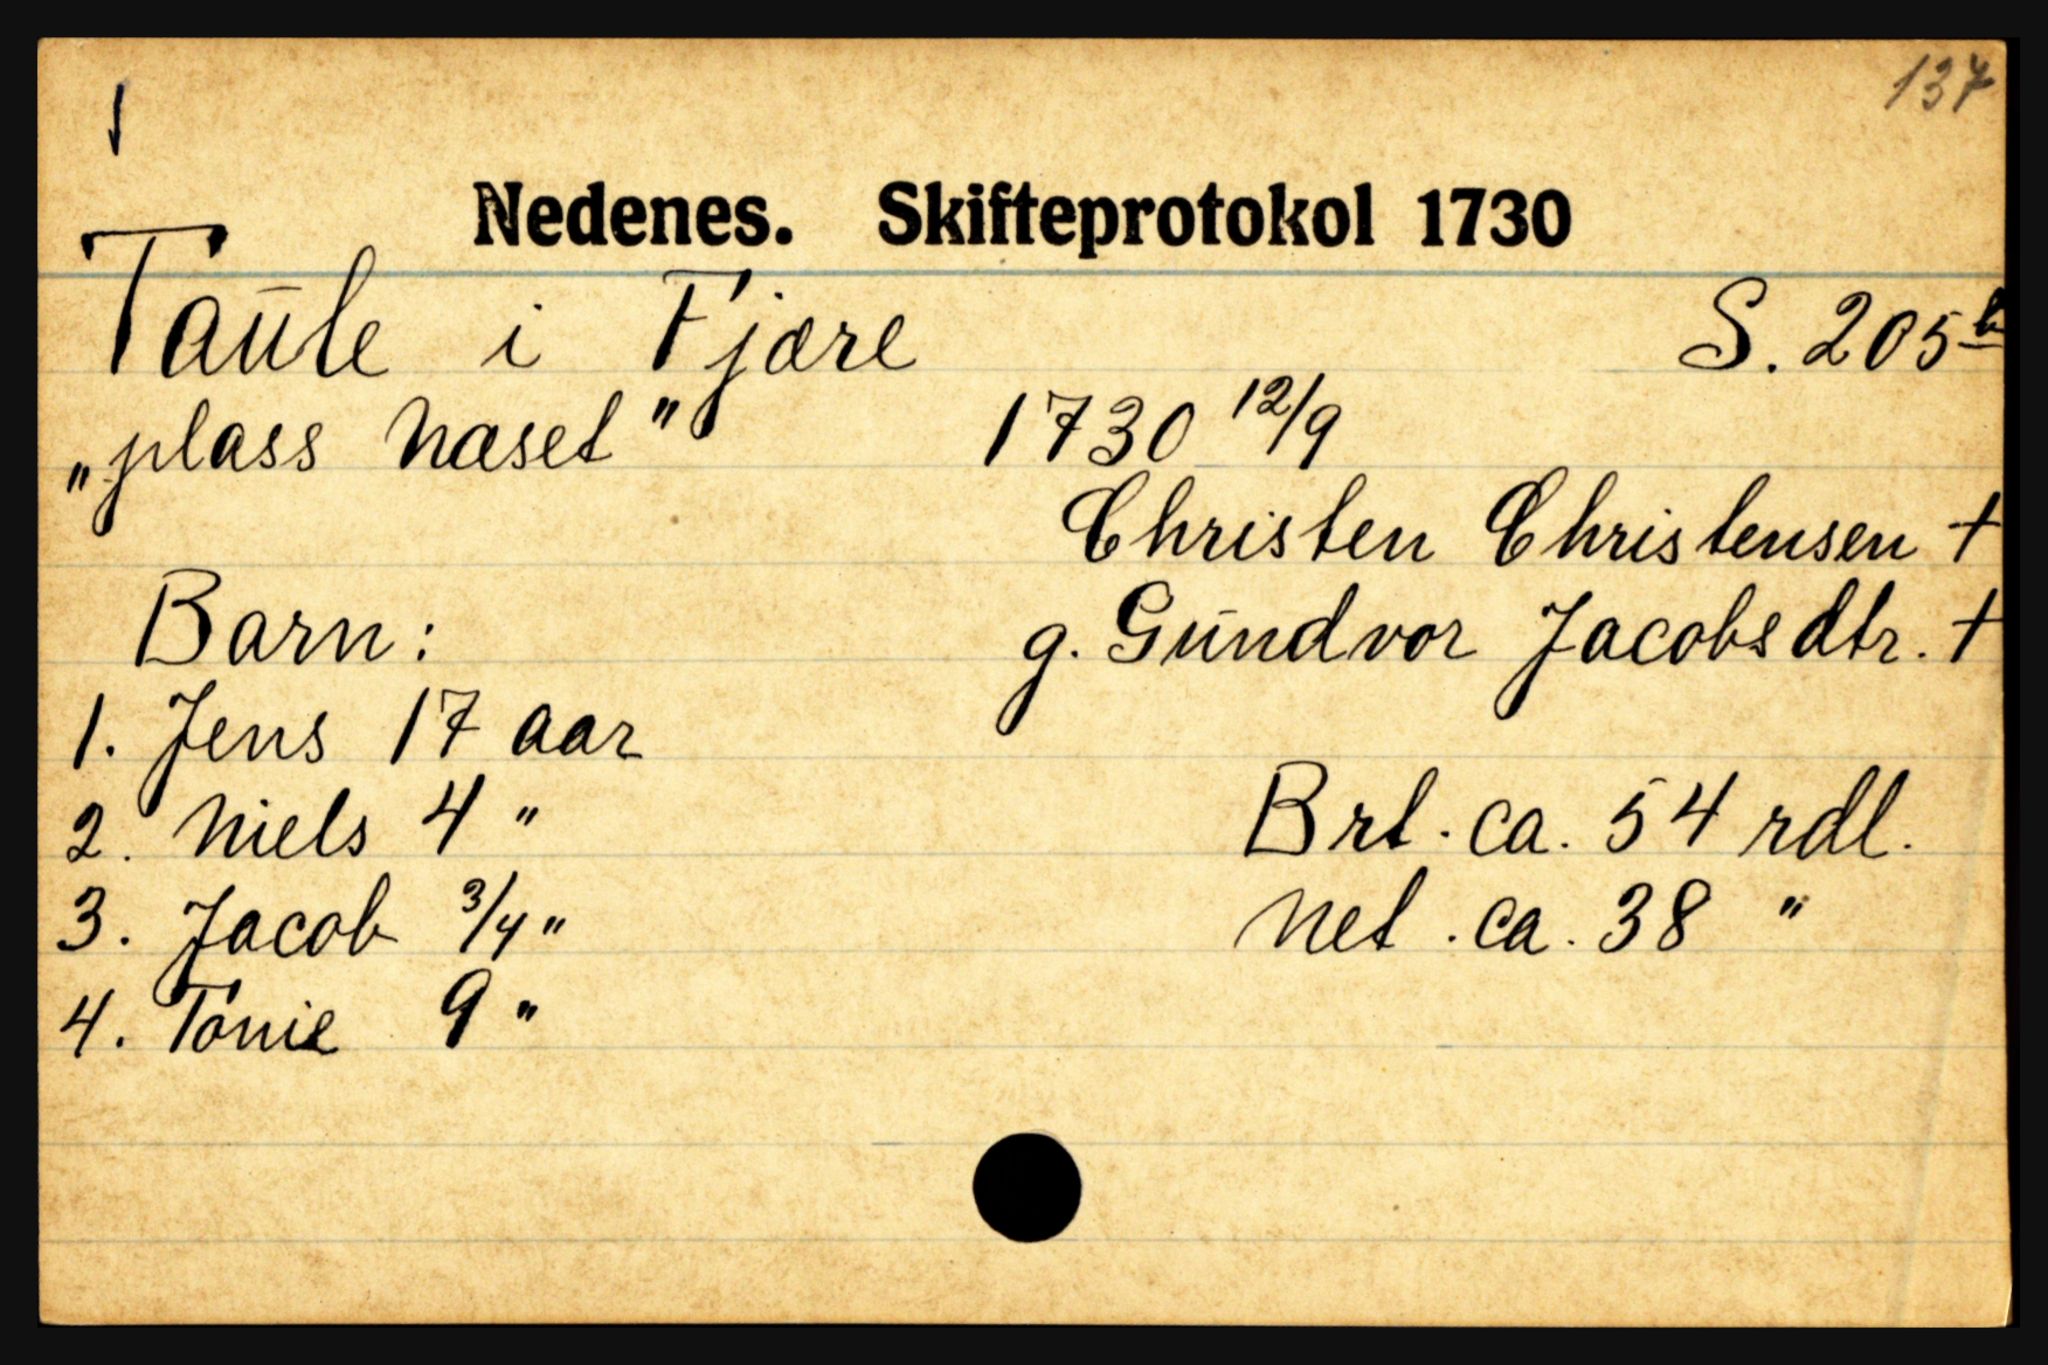 137
Nedenes. Skifteprotokol 1730
Taule i Fjære S. 205 b
„plass Næset" 1730 12/9
Christen Christensen +
Barn: g. Gundvor Jacobsdtr. +
1. Jens 17 aar
2. Niels 4 " Brt. ca. 54 rdl.
3. Jacob 3/4 " Net. ca. 38 "
4. Tonie 9 "